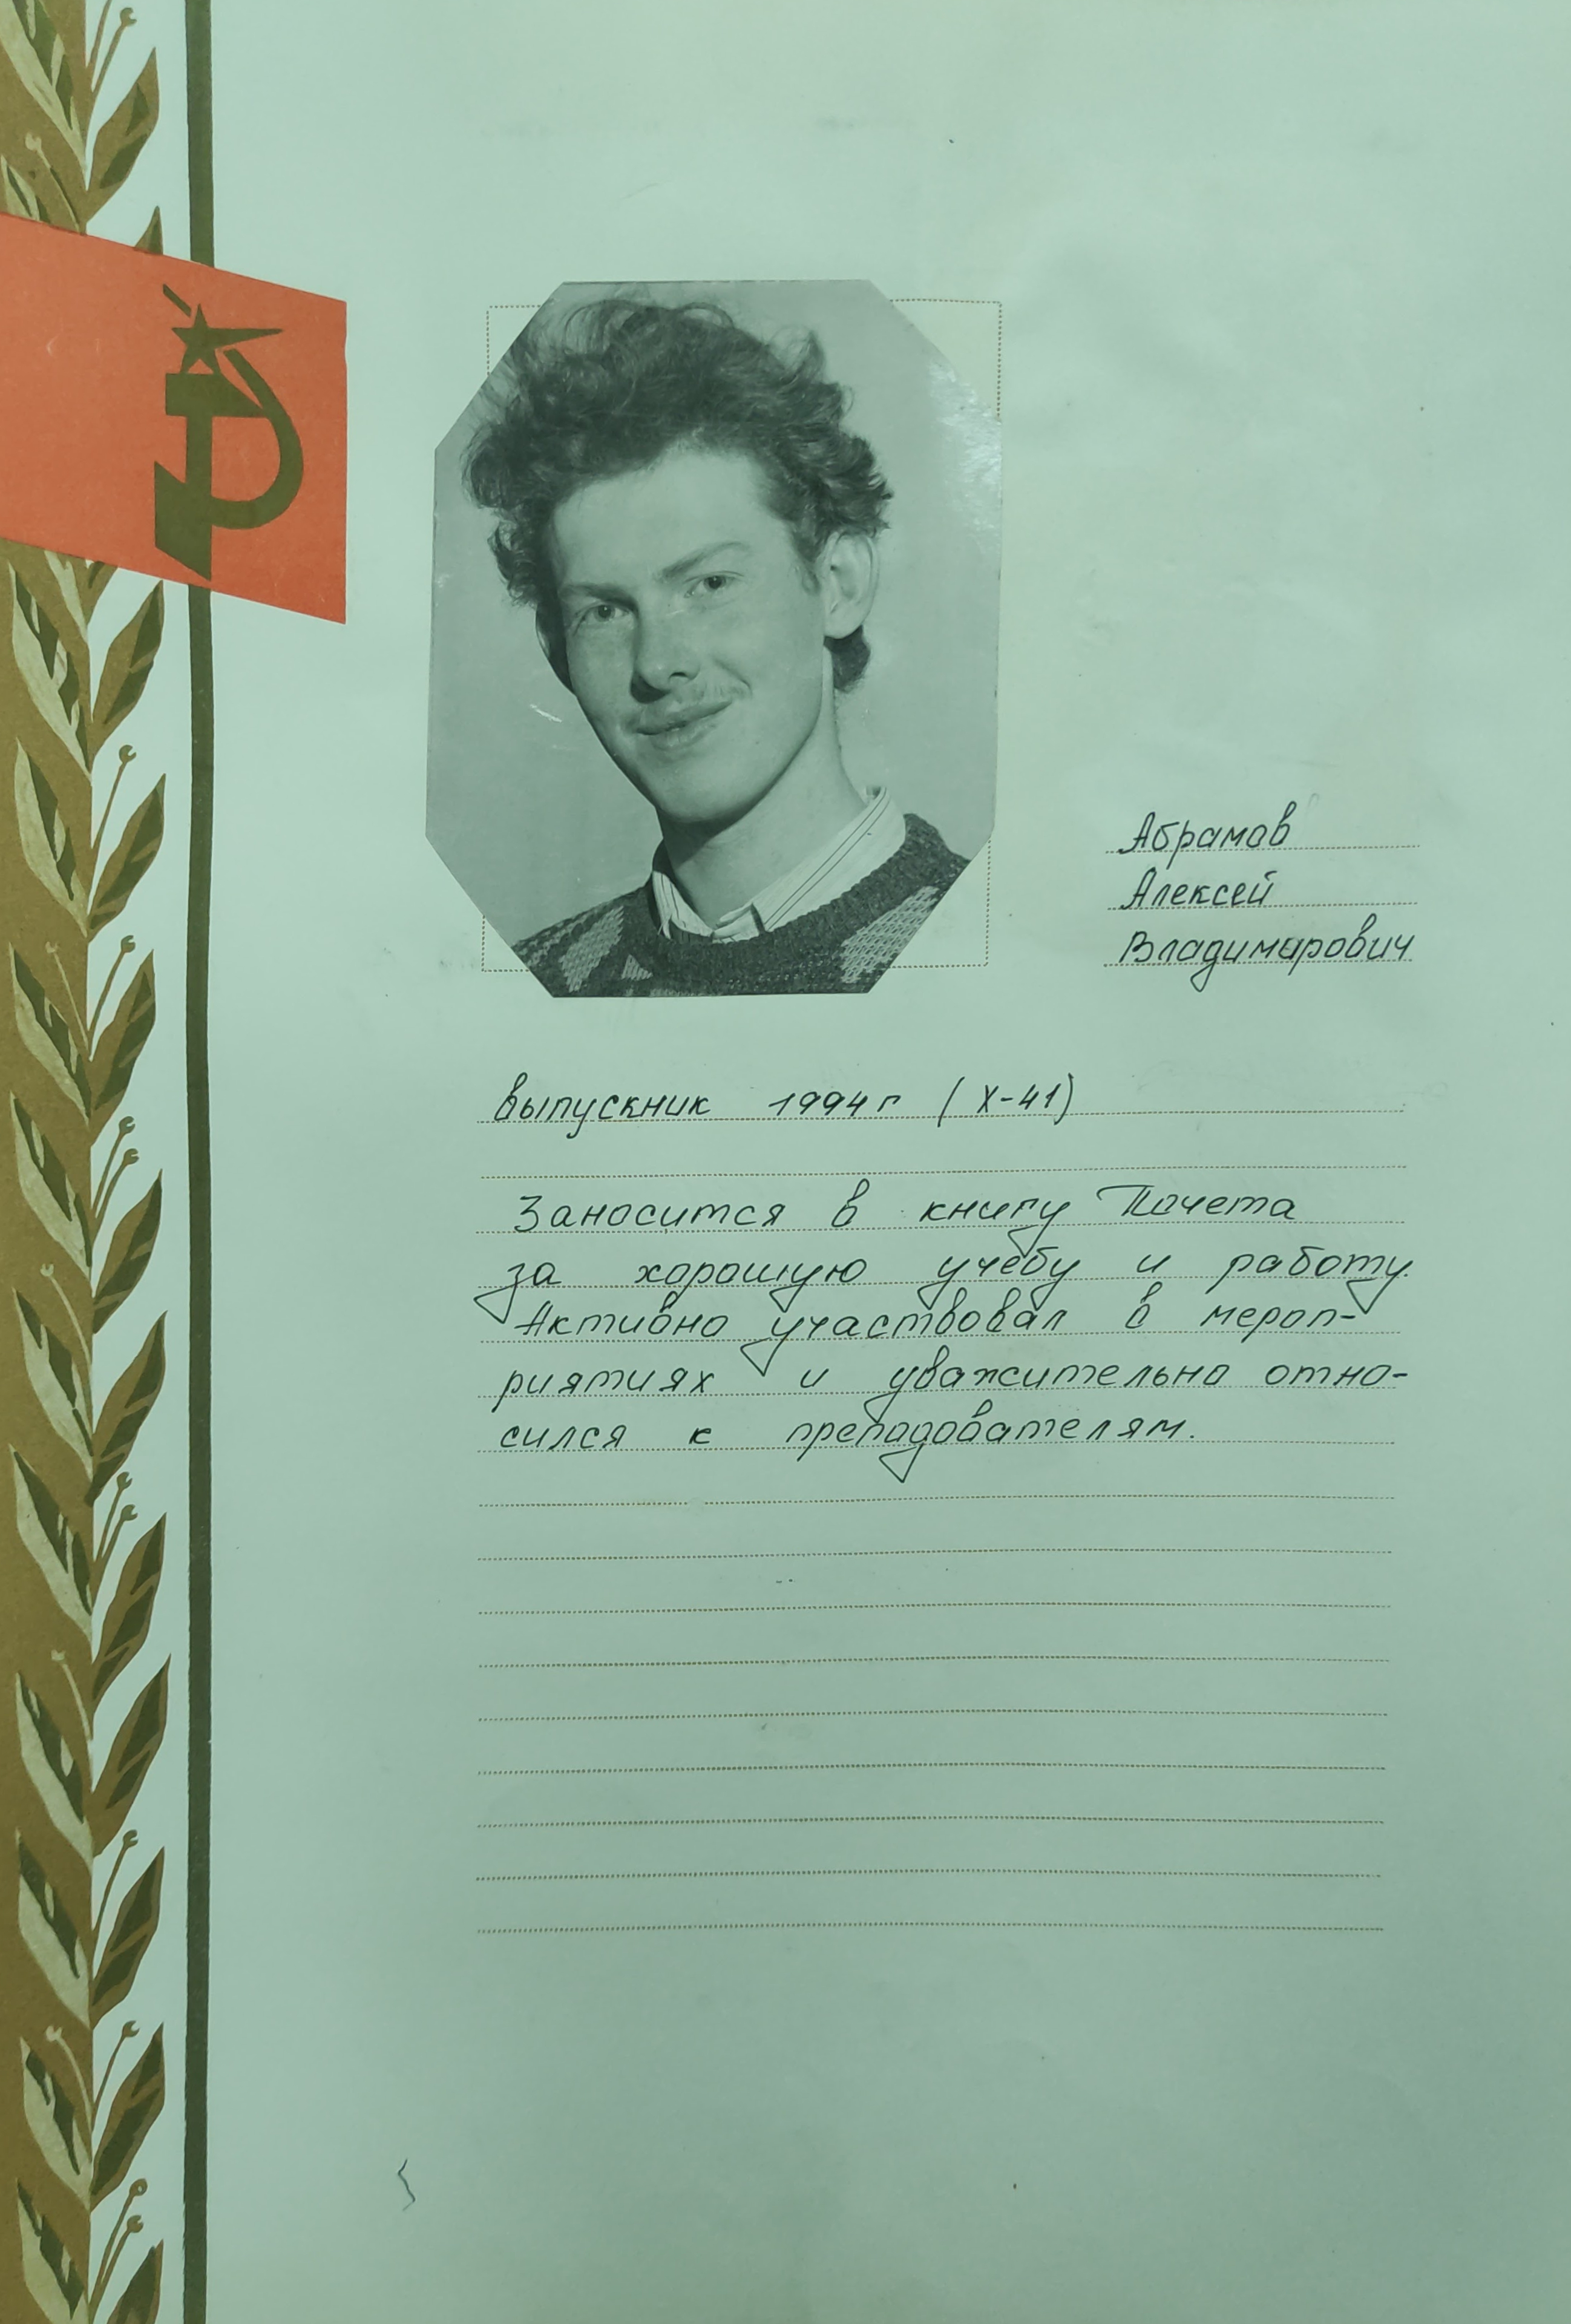 Абрамов
Алексей
Владимирович
выпускник 1994г (Х-41)
Заносится в книгу Почета
за хорошую учебу и работу.
Активно участвовал в мероп-
риятиях и уважительно отно-
сился к преподователям.